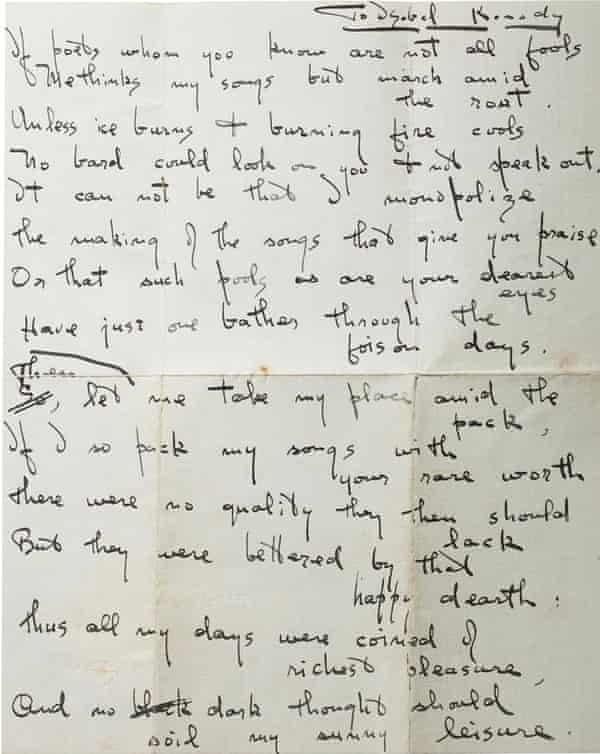 To Isobel Kennedy
If poets whom you know are not all fools
Methinks my songs but march amid
the rout.
Unless ice burns & burning fire cools
No bard could look on you & not speak out.
It can not be that I monopolize
the making of the songs that give you praise
Or that such pools as are your dearest
eyes
Have just one bather through the
foison days.
Then
So, let me take my place amid the
pack,
If I so pack my songs with
your rare worth
there were no quality they then should
lack
But they were bettered by that
happy dearth:
thus all my days were coined of
richest pleasure,
And no black dark thought should
soil my sunny leisure.